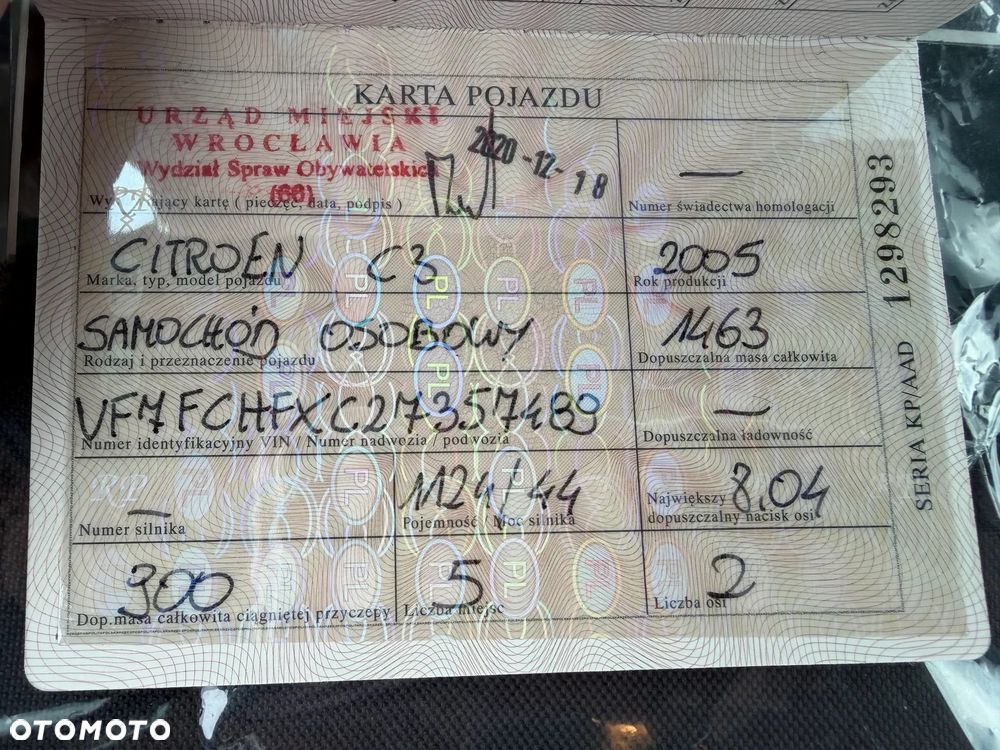 KARTA POJAZDU
URZĄD MIEJSKI
WROCŁAWIA
Wydział Spraw Obywatelskich
(68)
2020-12-18
(pieczęć, data, podpis)
—
Numer świadectwa homologacji
CITROEN C3
Marka, typ, model pojazdu
2005
Rok produkcji
SAMOCHÓD OSOBOWY
Rodzaj i przeznaczenie pojazdu
1463
Dopuszczalna masa całkowita
VF7FCHFXC27357489
Numer identyfikacyjny VIN / Numer nadwozia / podwozia
—
Dopuszczalna ładowność
—
Numer silnika
1124/44
Pojemność / Moc silnika
8.04
Największy
dopuszczalny nacisk osi
900
Dop.masa całkowita ciągniętej przyczepy
5
Liczba miejsc
2
Liczba osi
SERIA KP/AAD 1298293
OTOMOTO